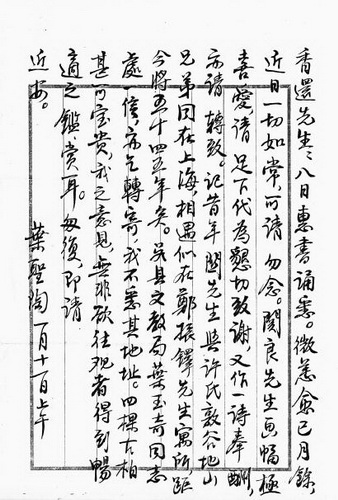 香還先生：八日惠書誦悉。微恙愈已月餘，
近日一切如常，可請勿念。閔良先生画幅極
喜愛，請足下代為懇切致謝，又作一詩奉酬，
亦請轉致。記昔年閔先生與許氏敦谷地山
兄弟同在上海，相遇似在鄭振鐸先生寓所，距
今將五十四五年矣。吳縣文教局葉玉奇同志
處一信，亦乞轉寄，我不悉其地址。四棵古柏
甚可宝贵，我之意見，無非欲往观者得到暢
適之鑑賞耳。匆復，即請
近安。
葉聖陶 一月十一日上午